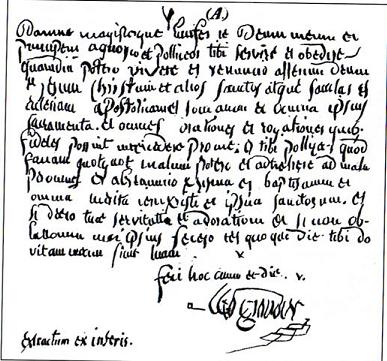 (A)
Domine magisterque lucifer te Deum meum et
principem agnosco et polliceor tibi servire et obedire
quamdiu potero vivere et renuncio alterum Deum
et Jesum Christum et alios sanctos atque sanctas et
ecclesiam Apostolicam et romanam et omnia ipsius
sacramenta et omnes orationes et rogationes quib
fideles possint intercedere pro me et tibi polliceor quod
faciam quotquot malum potero et attrahere ad mala
per omnes et abrenuncio et baptismum et
omnia merita et ipsius sanctorum et
si deero tuae servituti et adorationi et si non ob-
lationem mei ipsius fecero ter quoque die tibi do
vitam meam sicut tuam
feci hoc anno et die
extractum ex inferis.